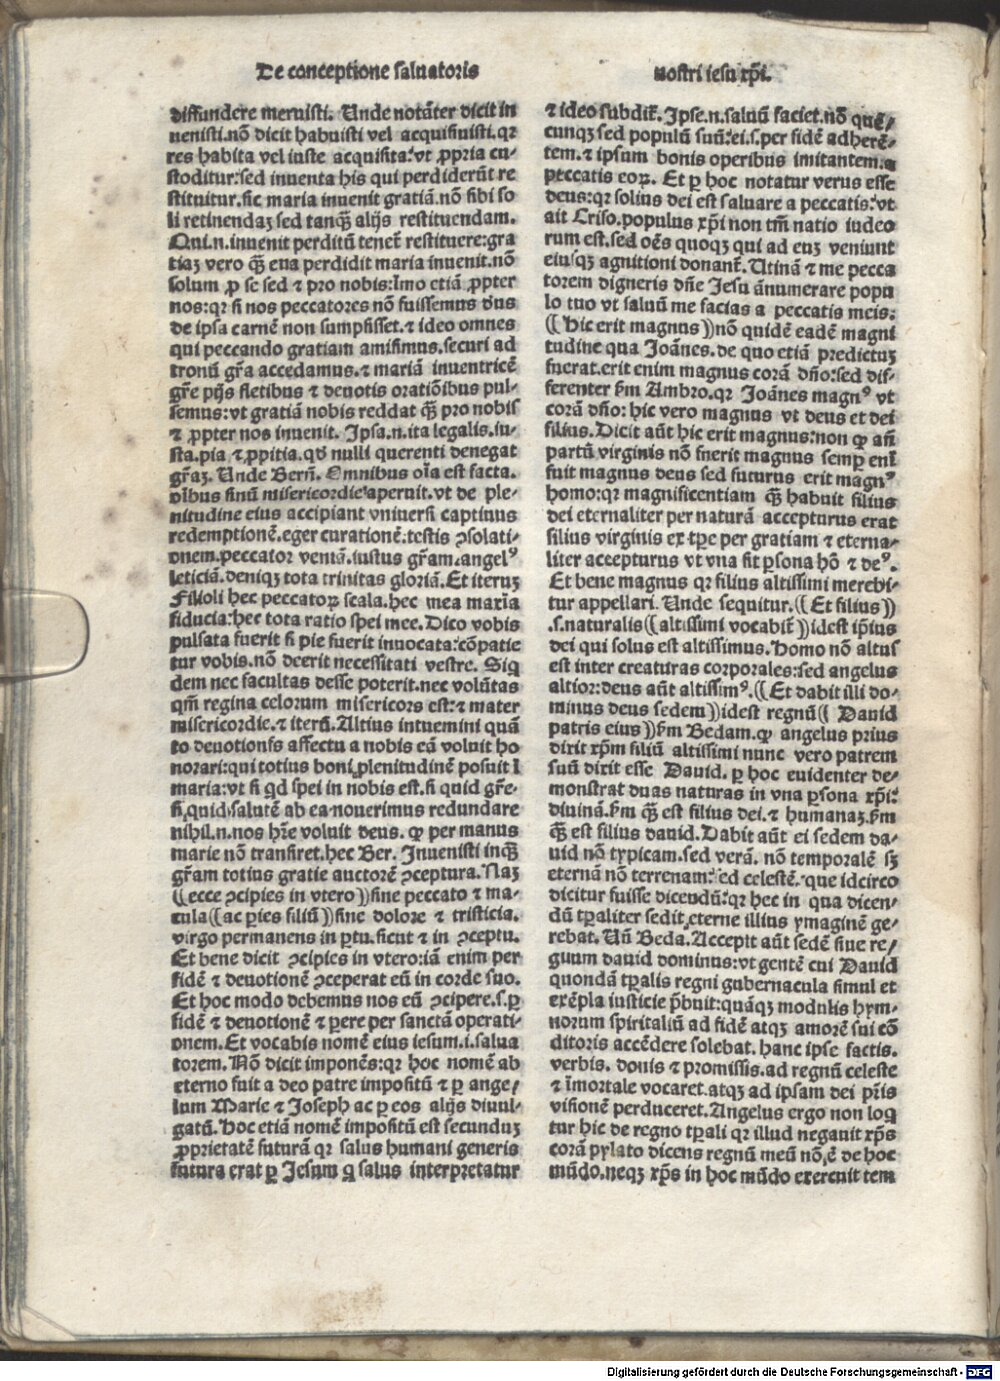 De conceptione saluatoris
diffundere meruisti. Unde notāter dicit in
uenisti.nō dicit habuisti vel acquisiuisti.qr
res habita vel iuste acquisita:vt ꝓpria cu-
stoditur:sed inuenta his qui perdiderūt re
stituitur.sic maria inuenit gratiā.nō sibi so
li retinendaʒ sed tanqȝ alijs restituendam.
Qui.n.inuenit perditū tenet̄ restituere:gra
tiaʒ vero quā eua perdidit maria inuenit.nō
solum ꝓ se sed ⁊ pro nobis:Imo etiā ꝓpter
nos:qr si nos peccatores nō fuissemus dn̄s
de ipsa carnē non sumpsisset.⁊ ideo omnes
qui peccando gratiam amisimus.securi ad
tronū gr̄a accedamus.⁊ mariā inuentricē
gr̄e pijs fletibus ⁊ deuotis oratiōibus pul-
semus:vt gratiā nobis reddat quā pro nobis
⁊ ꝓpter nos inuenit. Ipsa.n.ita legalis.iu-
sta.pia ⁊ ꝓpitia.qd̄ nulli querenti denegat
gr̄aʒ. Unde Bern̄. Omnibus oīa est facta.
oībus sinū misericordie aperuit.vt de ple-
nitudine eius accipiant vniuersi captiuus
redemptionē.eger curationē.tristis ꝯsolati-
onem.peccator veniā.iustus gr̄am.angelꝰ
leticiā.deniqʒ tota trinitas gloriā. Et iteruʒ
Filioli hec peccatoꝝ scala.hec mea maxīa
fiducia:hec tota ratio spei mee. Dico vobis
pulsata fuerit si pie fuerit inuocata:cōpatie
tur vobis.nō deerit necessitati vestre. Siq
dem nec facultas deesse poterit.nec volūtas
qm̄ regina celorum misericors est:⁊ mater
misericordie.⁊ iterū. Altius intuemini quā
to deuotionis affectu a nobis eā voluit ho
norari:qui totius boni plenitudinē posuit ī
maria:vt si qd̄ spei in nobis est.si quid gr̄e-
si quid salutē ab ea nouerimus redundare
nihil.n.nos hr̄e voluit deus. qd̄ per manus
marie nō transiret.hec Ber. Inuenisti inquā
gr̄am totius gratie auctorē ꝯceptura. Naʒ
((ecce ꝯcipies in vtero))sine peccato ⁊ ma-
cula((ac ꝑies filiū))sine dolore ⁊ tristicia.
virgo permanens in ꝑtu.sicut ⁊ in ꝯceptu.
Et bene dicit ꝯcipies in vtero:iā enim per
fidē ⁊ deuotionē ꝯceperat eū in corde suo.
Et hoc modo debemus nos eū ꝯcipere.s.ꝑ
fidē ⁊ deuotionē ⁊ ꝑere per sanctā operati-
onem. Et vocabis nomē eius iesum.i.salua
torem. Nō dicit imponēs:qr hoc nomē ab
eterno fuit a deo patre impositū ⁊ ꝑ ange-
lum Marie ⁊ Joseph ac ꝑ eos alijs diuul-
gatū. Hoc etiā nomē impositū est secunduʒ
ꝓprietatē futurā qr salus humani generis
futura erat ꝑ Jesum q salus interpretatur
nostri iesu xp̄i.
⁊ ideo subdit̄. Ipse.n.saluū faciet.nō quē-
cunqʒ sed populū suū:ei.s.per fidē adherē-
tem.⁊ ipsum bonis operibus imitantem.a
peccatis eoꝝ. Et ꝑ hoc notatur verus esse
deus:qr solius dei est saluare a peccatis:vt
ait Criso.populus xp̄i non tm̄ natio iudeo
rum est.sed oēs quoqʒ qui ad euʒ veniunt
eiusqʒ agnitioni donant̄. Utinā ⁊ me pecca
torem digneris dn̄e Jesu ānumerare popu
lo tuo vt saluū me facias a peccatis meis.
((Hic erit magnus))nō quidē eadē magni
tudine qua Joānes.de quo etiā predictuʒ
fuerat.erit enim magnus corā dn̄o:sed dif-
ferenter ẜm Ambro.qr Joānes magnꝰ vt
corā dn̄o: hic vero magnus vt deus et dei
filius. Dicit aūt hic erit magnus:non qd̄ an̄
partū virginis nō fuerit magnus semꝑ eni
fuit magnus deus sed futurus erit magnꝰ
homo:qr magnificentiam quā habuit filius
dei eternaliter per naturā accepturus erat
filius virginis ex tꝑe per gratiam ⁊ eterna-
liter accepturus vt vna sit ꝑsona hō ⁊ deꝰ.
Et bene magnus qr filius altissimi merebi-
tur appellari. Unde sequitur.((Et filius))
.s.naturalis((altissimi vocabit̄))idest ip̄ius
dei qui solus est altissimus. Homo nō altus
est inter creaturas corporales:sed angelus
altior:deus aūt altissimꝰ.((Et dabit illi do-
minus deus sedem))idest regnū((Dauid
patris eius))ẜm Bedam.qd̄ angelus prius
dixit xp̄m filiū altissimi nunc vero patrem
suū dixit esse Dauid. ꝑ hoc euidenter de-
monstrat duas naturas in vna ꝑsona xp̄i:
diuinā.ẜm quā est filius dei.⁊ humanaʒ.ẜm
quā est filius dauid. Dabit aūt ei sedem da-
uid nō typicam.sed verā. nō temporalē sʒ
eternā nō terrenam:sed celestē. que idcirco
dicitur fuisse dicendū:qr hec in qua dicen-
dū tꝑaliter sedit eterne illius ymaginē ge-
rebat. Un̄ Beda. Accepit aūt sedē siue re-
gnum dauid dominus:vt gentē cui Dauid
quondā tꝑalis regni gubernacula simul et
exēpla iusticie p̄buit:quāqʒ modulis hym-
norum spiritaliū ad fidē atqʒ amorē sui cō
ditoris accēdere solebat. hanc ipse factis.
verbis. donis ⁊ promissis.ad regnū celeste
⁊ īmortale vocaret.atqʒ ad ipsam dei pr̄is
visionē perduceret. Angelus ergo non loq
tur hic de regno tꝑali qr illud negauit xp̄s
corā pylato dicens regnū meū nō ē de hoc
mūdo.neqʒ xp̄s in hoc mūdo exercuit tem
Digitalisierung gefördert durch die Deutsche Forschungsgemeinschaft - DFG